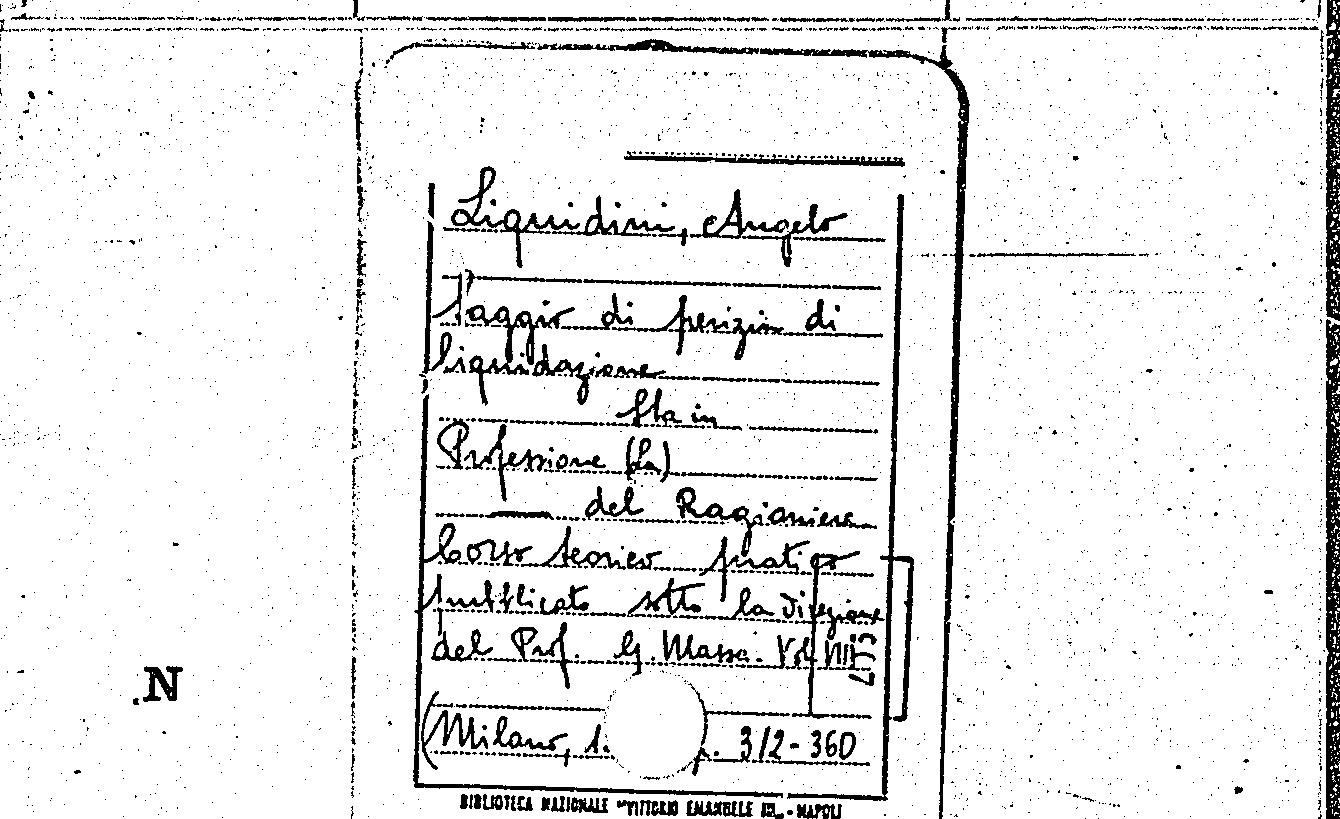 Liquidini, Angelo
Saggio di perizia di
liquidazione
Sta in
Professione (La)
del Ragioniere
Corso teorico pratico
pubblicato sotto la direzione
del Prof. G. Massa. Vol. VIII
(Milano, 3/2-360
N
BIBLIOTECA NAZIONALE "VITTORIO EMANUELE III" - NAPOLI